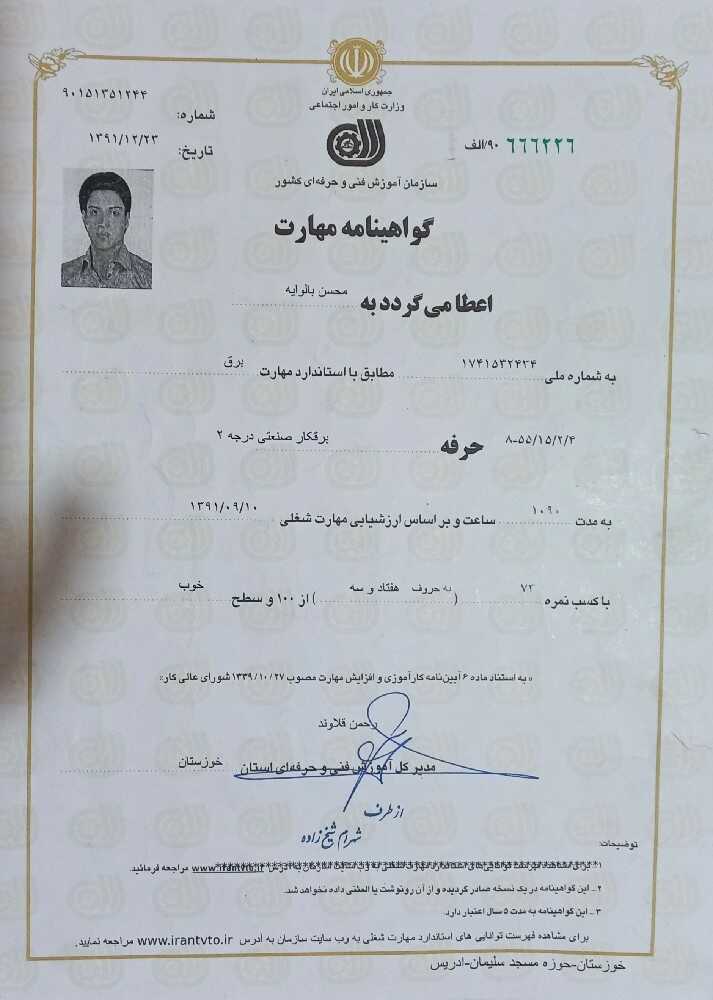 جمهوری اسلامی ایران
وزارت کار و امور اجتماعی
سازمان آموزش فنی و حرفه‌ای کشور
شماره: ۹۰۱۵۱۳۵۱۲۴۴
تاریخ: ۱۳۹۱/۱۲/۲۳
۶۶۶۲۲۶ ۹۰/الف
گواهینامه مهارت
اعطا می گردد به محسن بالوایه
به شماره ملی ۱۷۴۱۵۳۲۴۳۴ مطابق با استاندارد مهارت برق
۸-۵۵/۱۵/۲/۴ حرفه برقکار صنعتی درجه ۲
به مدت ۱۰۹۰ ساعت و بر اساس ارزشیابی مهارت شغلی ۱۳۹۱/۰۹/۱۰
با کسب نمره ۷۳ (به حروف هفتاد و سه) از ۱۰۰ و سطح خوب
« به استناد ماده ۶ آیین‌نامه کارآموزی و افزایش مهارت مصوب ۱۳۳۹/۱۰/۲۷ شورای عالی کار»
رحمن قلاوند
مدیر کل آموزش فنی و حرفه‌ای استان خوزستان
از طرف
شهرام شیخ زاده
توضیحات:
www.irantvto.ir مراجعه فرمائید.
۲- این گواهینامه در یک نسخه صادر گردیده و از آن رونوشت یا المثنی داده نخواهد شد.
۳- این گواهینامه به مدت ۵ سال اعتبار دارد.
برای مشاهده فهرست توانایی های استاندارد مهارت شغلی به وب سایت سازمان به آدرس www.irantvto.ir مراجعه نمایید.
خوزستان-حوزه مسجد سلیمان-ادریس